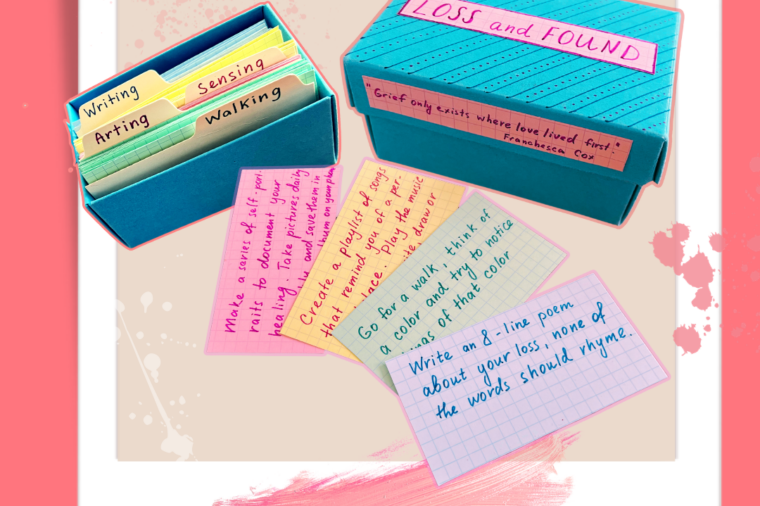 Writing
Sensing
Arting
Walking
LOSS and FOUND
"Grief only exists where love lived first."
Franchesca Cox
Make a series of self-port
raits to document your
healing. Take pictures daily
ly and save them in
them on your phone
Create a playlist of songs
that remind you of a per-
lace. Play the music
ite, draw or
Go for a walk, think of
a color and try to notice
ings of that color
Write an 8-line poem
about your loss, none of
the words should rhyme.